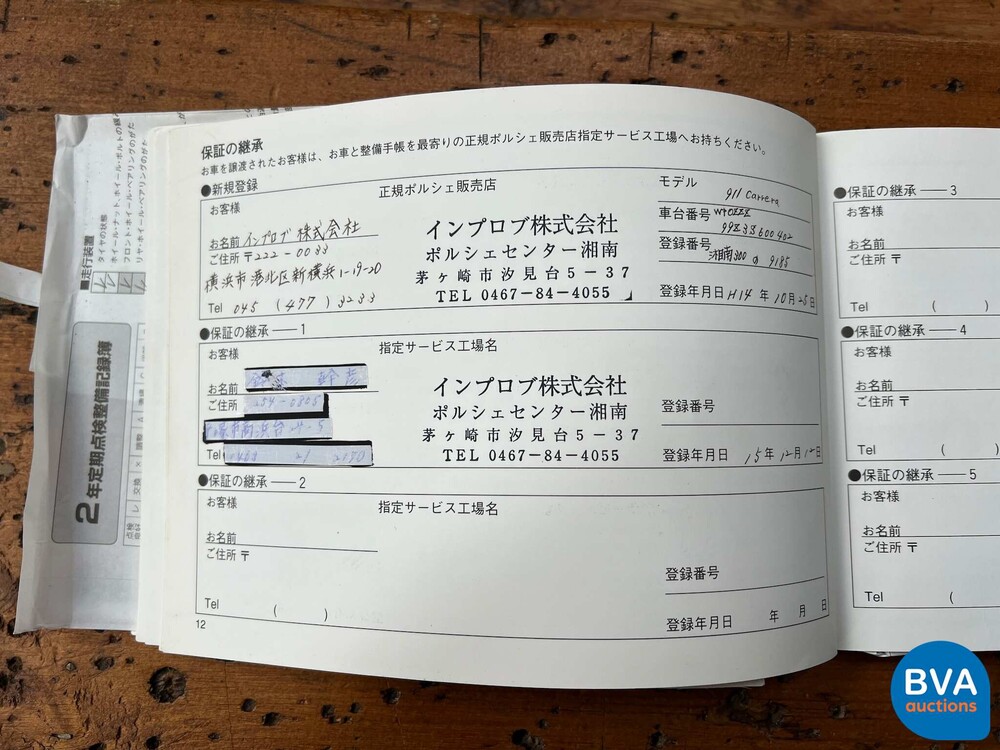 保証の継承
お車を譲渡されたお客様は、お車と整備手帳を最寄りの正規ポルシェ販売店指定サービス工場へお持ちください。
●新規登録
お客様
お名前 インプロブ 株式会社
ご住所 〒222-0033
横浜市港北区新横浜1-19-20
Tel 045 (477) 3233
正規ポルシェ販売店
インプロブ株式会社
ポルシェセンター湘南
茅ヶ崎市汐見台5-37
TEL 0467-84-4055
モデル 911 Carrera
車台番号 WP0ZZZ
99Z3S600402
登録番号 湘南300 9185
登録年月日 H14年10月25日
●保証の継承──1
お客様
お名前
ご住所
Tel
指定サービス工場名
インプロブ株式会社
ポルシェセンター湘南
茅ヶ崎市汐見台5-37
TEL 0467-84-4055
登録番号
登録年月日 15年12月12日
●保証の継承──2
お客様
お名前
ご住所 〒
Tel ( )
指定サービス工場名
登録番号
登録年月日 年 月 日
12
●保証の継承──3
お客様
お名前
ご住所 〒
Tel (
●保証の継承──4
お客様
お名前
ご住所 〒
Tel (
●保証の継承──5
お客様
お名前
ご住所 〒
Tel (
■走行装置
タイヤの状態
ホイール・ナット、ホイール・ボルトの緩み
フロント・ホイール・ベアリングのがた
リヤ・ホイール・ベアリングのがた
2年定期点検整備記録簿
BVA
auctions